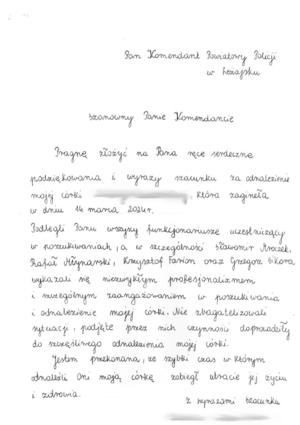 Pan Komendant Powiatowy Policji
w Leżajsku
Szanowny Panie Komendancie
Pragnę złożyć na Pana ręce serdeczne
podziękowania i wyrazy szacunku za odnalezienie
mojej córki , która zaginęła
w dniu 14 marca 2024r.
Podlegli Panu wszyscy funkcjonariusze uczestniczący
w poszukiwaniach, a w szczególności Sławomir Mroczek,
Rafał Młynarski, Krzysztof Farion oraz Grzegorz Sikora
wykazali się niezwykłym profesjonalizmem
i szczególnym zaangażowaniem w poszukiwania
i odnalezienie mojej córki. Nie zbagatelizowali
sytuacji, podjęte przez nich czynności doprowadziły
do szczęśliwego odnalezienia mojej córki.
Jestem przekonana, że szybki czas w którym
odnaleźli Oni moją córkę zapobiegł utracie jej życia
i zdrowia.
z wyrazami szacunku